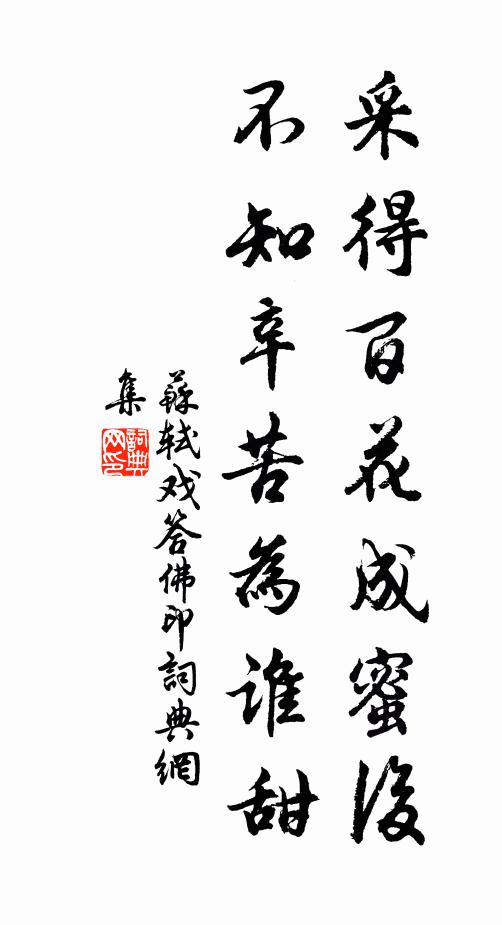 采得百花成蜜後
不知辛苦為誰甜
蘇軾戏答佛印詞典網
集
詞典
网印